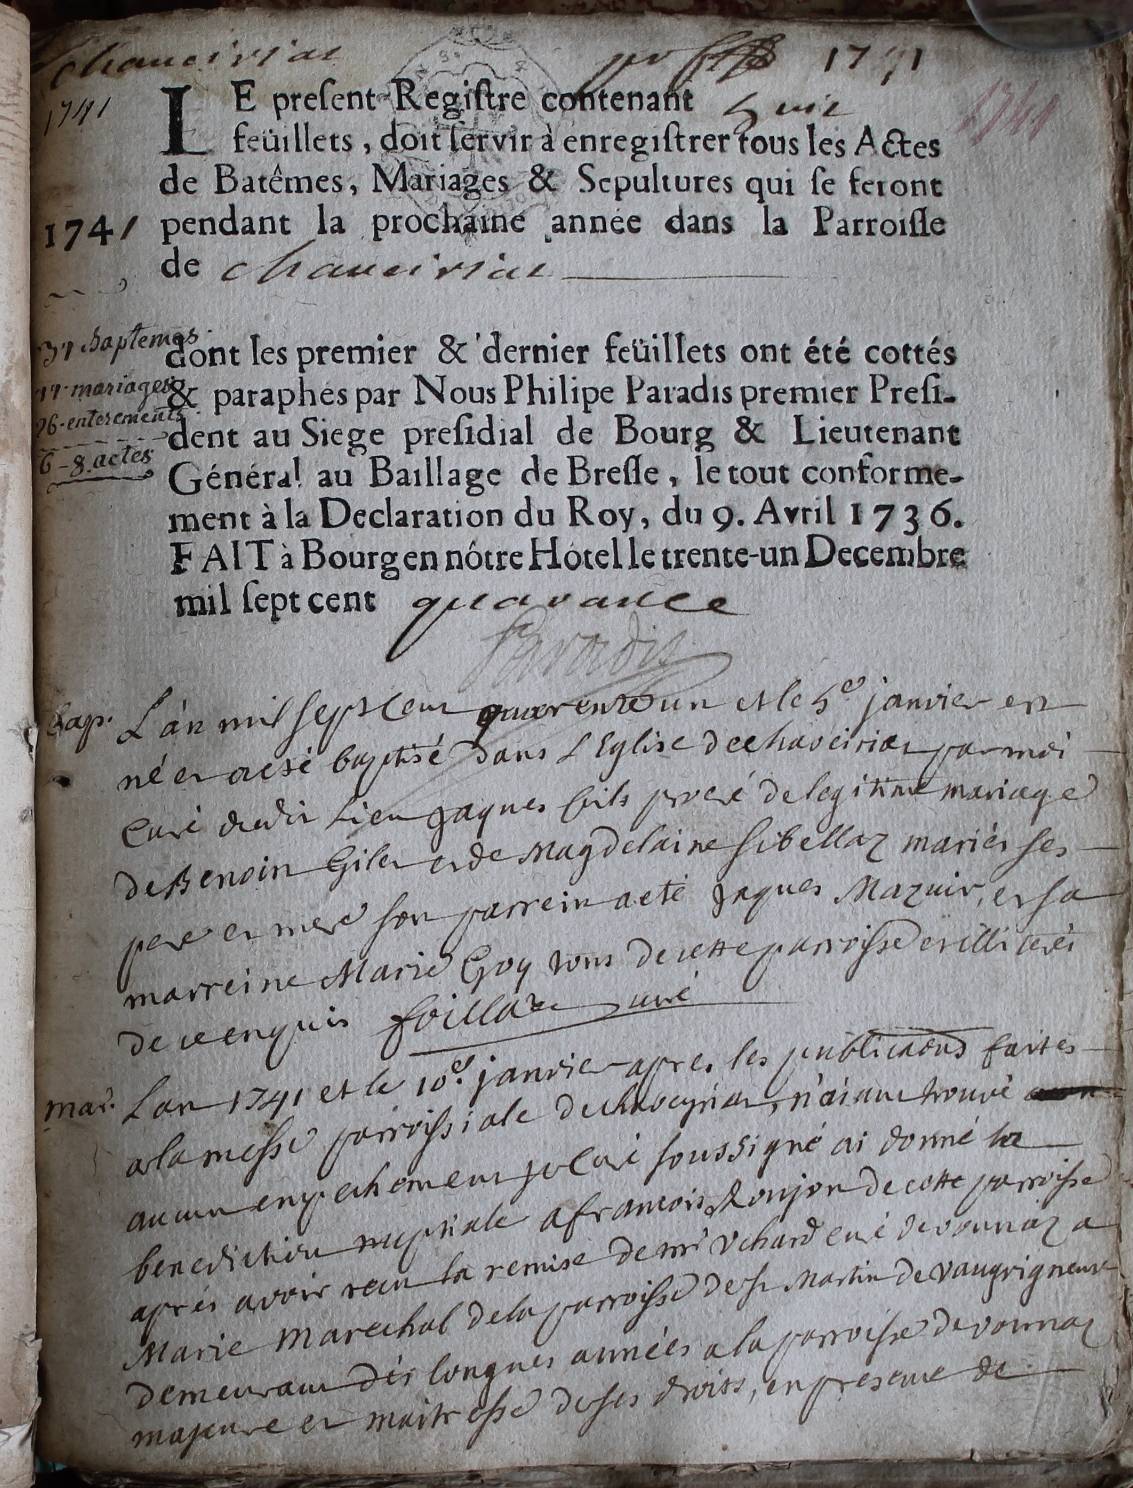 chaveiriat 1741
1741
LE present Registre contenant huit
feüillets, doit servir à enregistrer tous les Actes
de Batêmes, Mariages & Sepultures qui se feront
1741 pendant la prochaine année dans la Parroisse
de chaveiriat
baptemes
mariages
26 enterements
actes
dont les premier & dernier feüillets ont été cottés
& paraphés par Nous Philipe Paradis premier Presi-
dent au Siege presidial de Bourg & Lieutenant
Général au Baillage de Bresse, le tout conforme-
ment à la Declaration du Roy, du 9. Avril 1736.
FAIT à Bourg en nôtre Hôtel le trente-un Decembre
mil sept cent quarante
Paradis
bap. L'an mil sept cent quarente un et le 5e janvier est
né et a eté baptisé dans l'Eglise de chaveiriat par moi
Curé dudit Lieu Jaques fils procréé de legitime mariage
de Benoit Gilet et de Magdelaine Sibellaz mariés ses
pere et mere son parrein a eté Jaques Mazuir, et sa
marreine Marie Goy tous de cette parroisse et illiterés
de ce enquis foillaz curé
mar. Lan 1741 et le 10e janvier apres les publicaons faites
a la messe parroissiale de chaveyriat, n'aiant trouvé
aucun empechement je Curé soussigné ai donné la
benediction nuptiale a francois Donjon de cette parroisse
aprés avoir receu la remise de mr Vchard curé de vonnaz a
Marie Marechal de la parroisse de st Martin de vaugrigneuse
demeurant dés longues années a la parroisse de vonnaz
majeure et maitresse de ses droits, en presence de